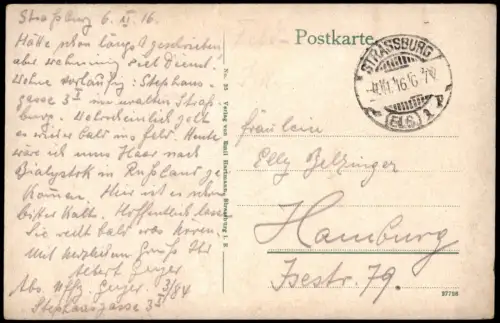 Straßburg 6. XI. 16.
Hätte schon längst geschrieben,
aber wahnsinnig viel Dienst.
Wohne vorläufig: Stephans-
gasse 3 I im uralten Straß-
burg. Wahrscheinlich geht
es wieder bald ins Feld. Heute
wäre ich ums Haar nach
Bialystok in Rußland ge-
kommen. Hier ist es schon
bitter kalt. Hoffentlich lassen
Sie recht bald was hören.
Mit herzlichem Gruß Ihr
Albert Geyer
Abs. Uffz. Geyer. 3/84
Stephansgasse 3 I
No. 25 Verlag von Emil Hartmann, Strassburg i. E.
Postkarte
STRASSBURG
(ELS.) 1
Fräulein
Elly Belzinger
Hamburg
Isestr. 79.
97798